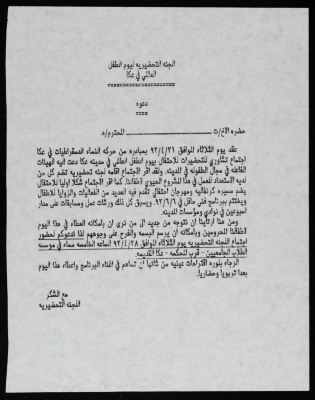 اللجنه التحضيريه ليوم الطفل
العالمي في عكا
====================
دعوه
=====
حضره الاخ/ت ........................ المحترم/ه.
عقد يوم الثلاثاء الموافق ٩٢/٤/٢١ بمبادره من حركه النساء الدمقراطيات في عكا
اجتماع تشاوري للتحضيرات للاحتفال بيوم الطفل العالمي في مدينه عكا دعت اليه الهيئات
الفاعله في مجال الطفوله في المدينه. ولقد اقر الاجتماع اقامه لجنه تحضيريه تضم كل من
لديه الاستعداد للعمل في هذا المشروع الحيوي لاطفالنا. كما اقر الاجتماع شكلا اوليا للاحتفال
يضم مسيره كرنفاليه ومهرجان احتفالي تقدم فيه العديد من الفعاليات والزوايا للاطفال
ويختتم ببرنامج فني حافل في ٩٢/٦/٦ ويسبق كل ذلك ورشات عمل ومسابقات على مدار
اسبوعين في نوادي ومؤسسات المدينه.
ومن هنا ارتأينا ان نتوجه من جديد الى من نرى ان بامكانه العطاء في هذا اليوم
لاطفالنا المحرومين وبامكانه ان يرسم البسمه والفرح على وجوههم لذا ندعوكم لحضور
اجتماع اللجنه التحضيريه يوم الثلاثاء الموافق ٩٢/٤/٢٨ الساعه الخامسه مساء في مؤسسه
الطلاب الجامعيين - قرب المحكمه - عكا القديمه.
الرجاء بلوره اقتراحات عينيه من شأنها ان تساهم في اغناء البرنامج واعطاء هذا اليوم
بعدا تربويا وحضاريا.
مع الشكر
اللجنه التحضيريه